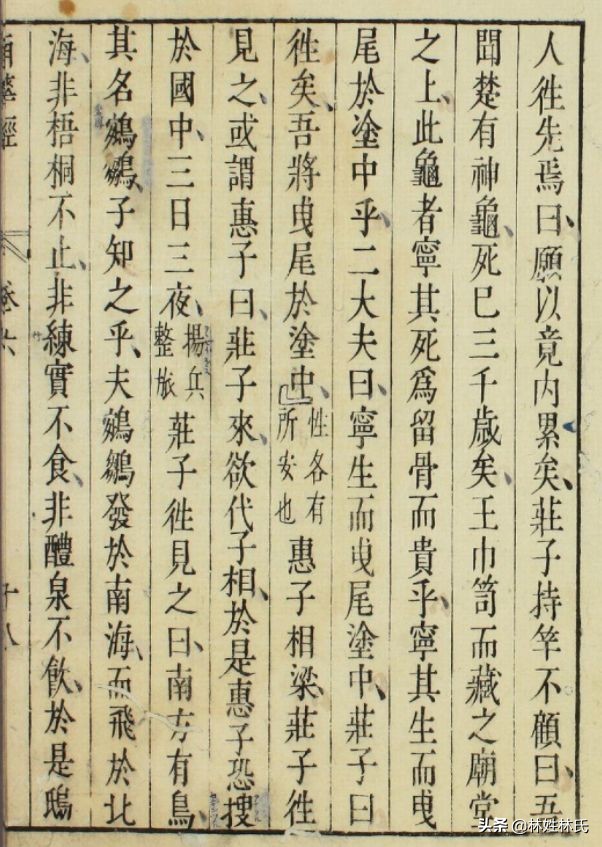 人徃先焉曰願以竟内累矣莊子持竿不顧曰吾
聞楚有神龜死巳三千歲矣王巾笥而藏之廟堂
之上此龜者寧其死爲留骨而貴乎寧其生而曵
尾於塗中乎二大夫曰寧生而曵尾塗中莊子曰
徃矣吾將曵尾於塗中性各有所安也惠子相梁莊子徃
見之或謂惠子曰莊子來欲代子相於是惠子恐搜
於國中三日三夜揚兵整旅莊子徃見之曰南方有鳥
其名鵷鶵子知之乎夫鵷鶵發於南海而飛於北
海非梧桐不止非練實不食非醴泉不飮於是鴟
南華經 卷六 十八
头条 @林姓林氏